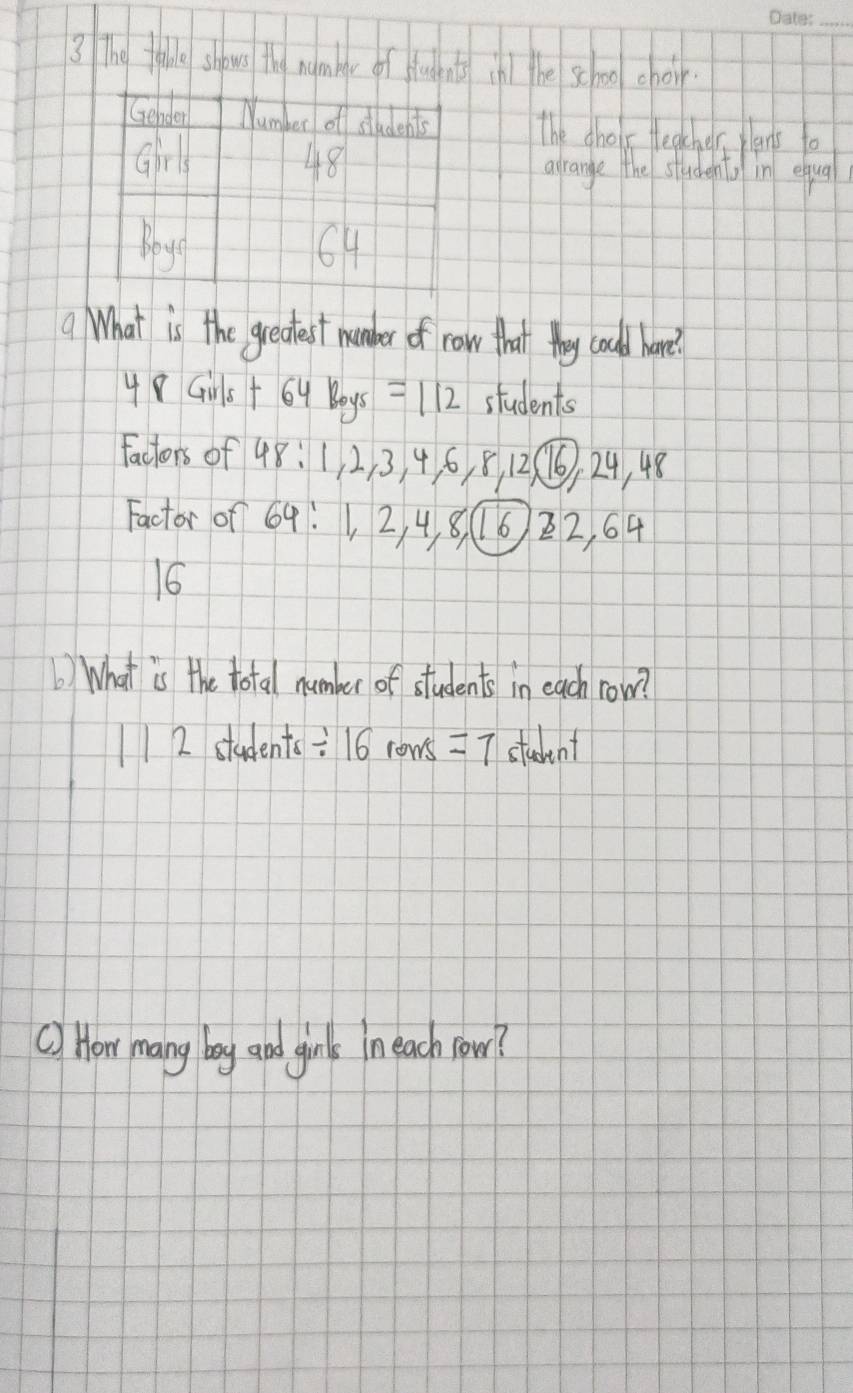 Date:
3 The table shows the number of students in the school choir.
Gender Number of students
Girls 48
Boys 64
The choir teacher plans to
arrange the students in equal
a What is the greatest number of row that they could have?
48 Girls + 64 Boys = 112 students
Factors of 48: 1, 2, 3, 4, 6, 8, 12, 16, 24, 48
Factor of 64: 1, 2, 4, 8, 16 32, 64
16
b) What is the total number of students in each row?
112 students ÷ 16 rows = 7 student
c) How mang boy and girls in each row?